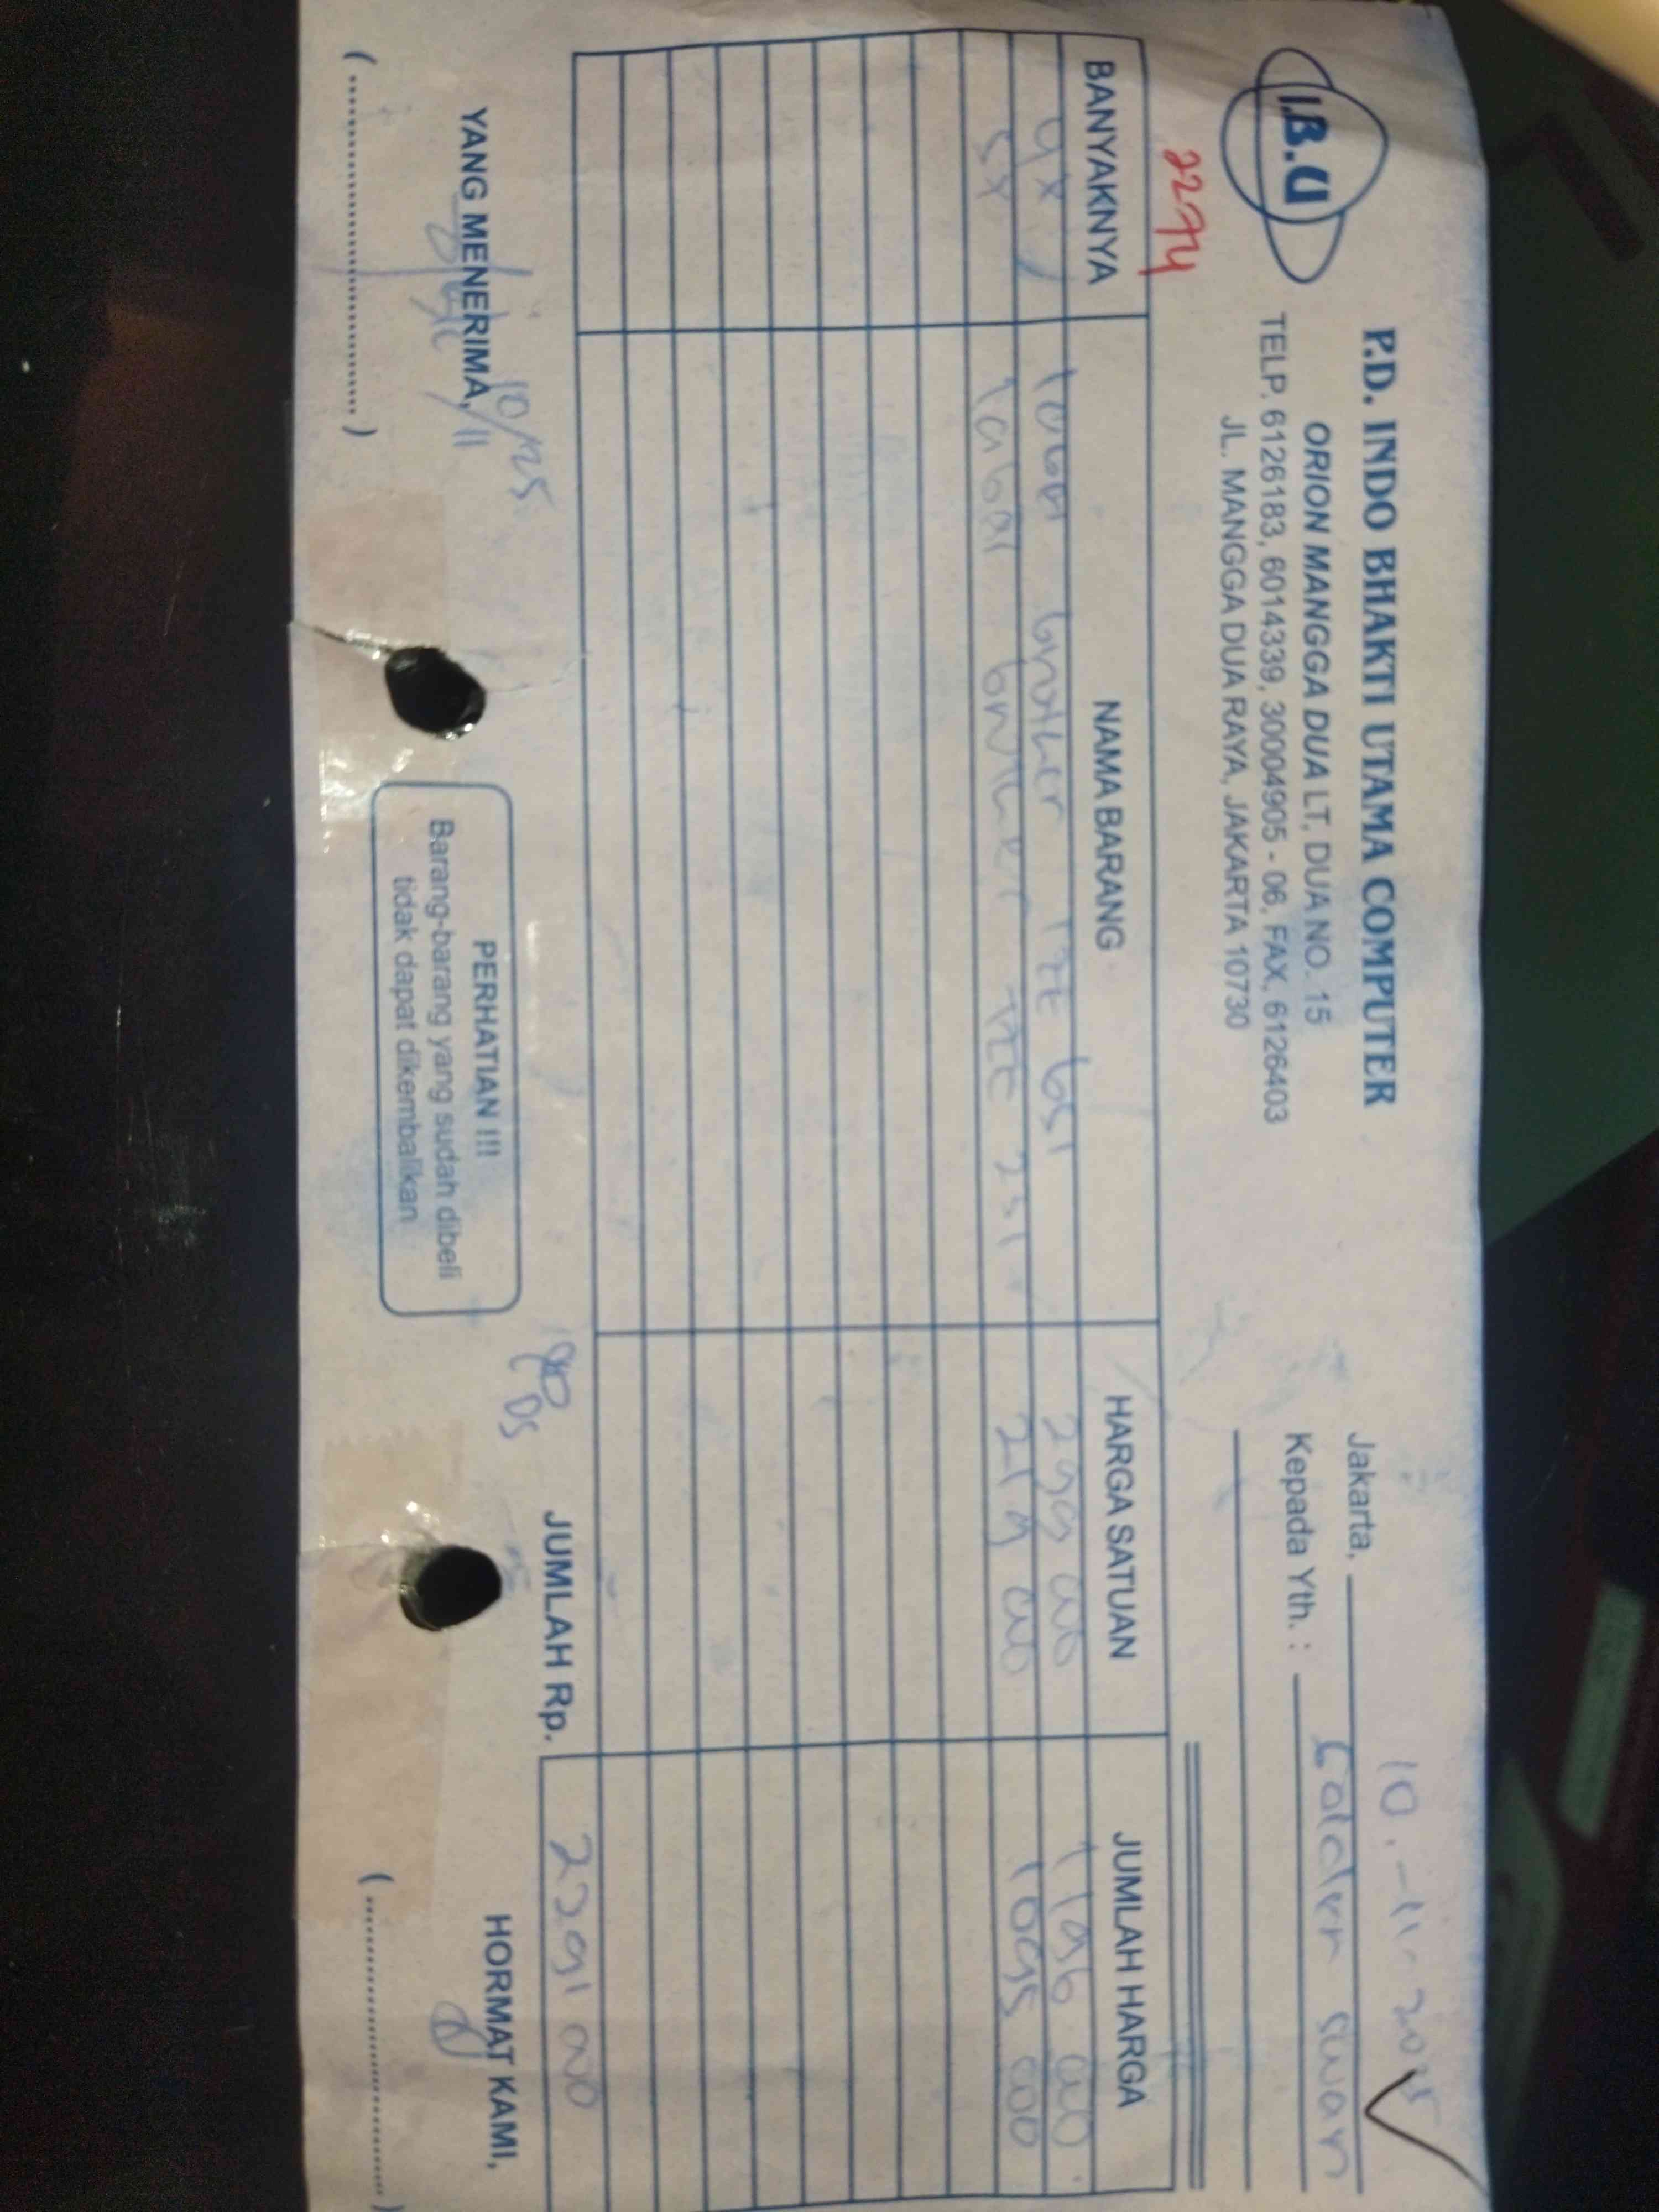 I.B.U
P.D. INDO BHAKTI UTAMA COMPUTER
ORION MANGGA DUA LT. DUA NO. 15
TELP. 6126183, 6014339, 30004905 - 06, FAX, 6126403
JL. MANGGA DUA RAYA, JAKARTA 10730
Jakarta, 10 - 11 - 2025
Kepada Yth. : Golden swan
2274
BANYAKNYA NAMA BARANG HARGA SATUAN JUMLAH HARGA
4x brother TZE 651 299 000 1196 000
5x brother TZE 231 219 000 1095 000
JUMLAH Rp. 2291 000
YANG MENERIMA,
10/11 25
PERHATIAN !!!
Barang-barang yang sudah dibeli
tidak dapat dikembalikan
HORMAT KAMI,
( .............................. ) ( .............................. )